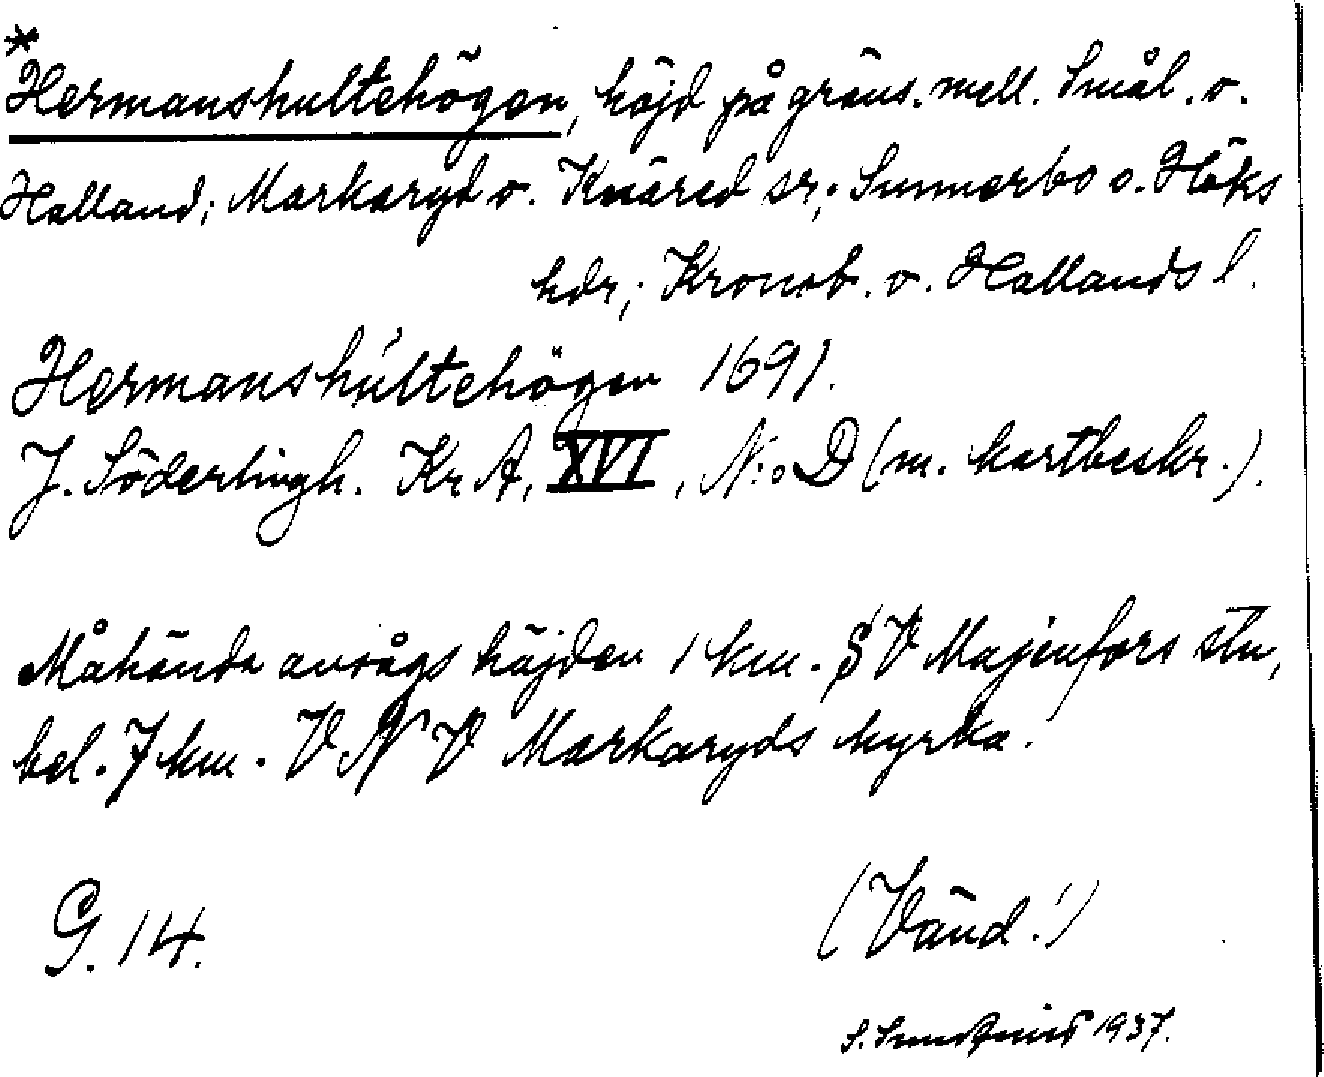 *
Hermanshultehögen, höjd på gräns. mell. Smål. o.
Halland; Markaryd o. Knäred sr; Sunnerbo o. Höks
hdr; Kronob. o. Hallands l.
Hermanshultehögen 1691.
J. Söderlingh. Kr A, XVI, N:o D (m. kartbeskr.).
Måhända avsågs höjden 1 km. S V Majenfors stn,
bel. 7 km. V N V Markaryds kyrka.
G. 14.
(Vänd!)
S. 1937.